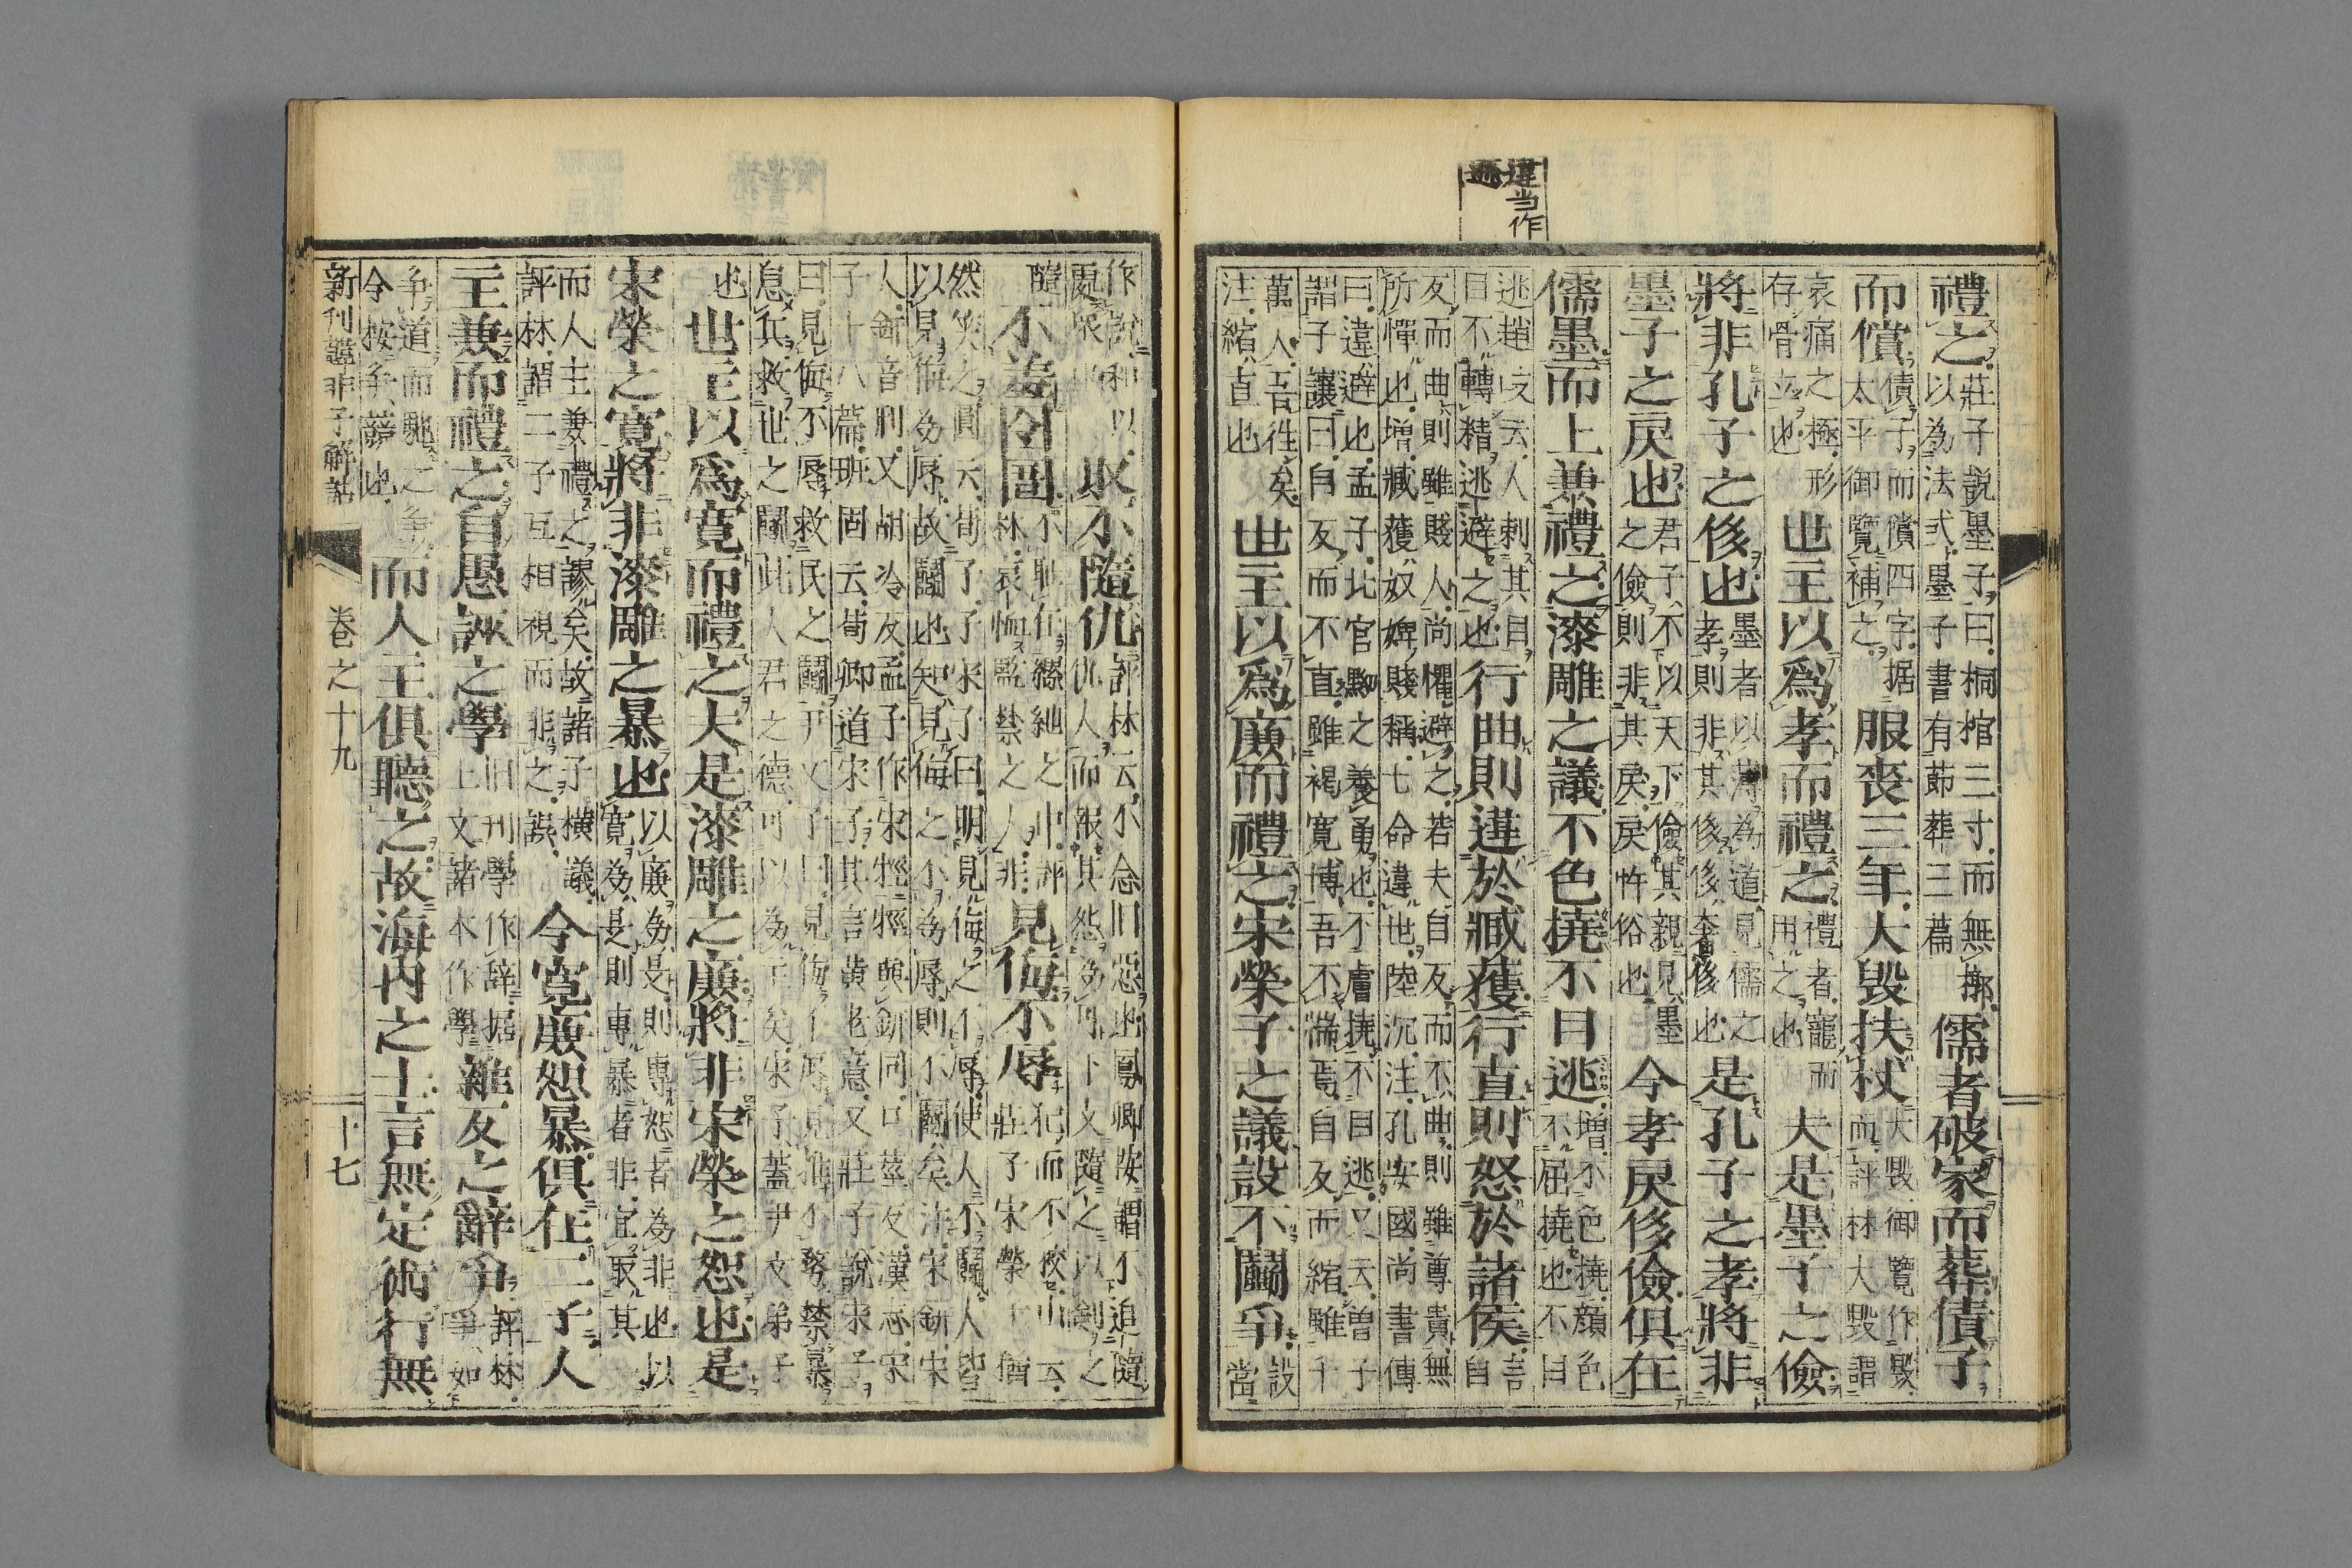 違当作
禮之莊子説墨子曰桐棺三寸而無椁
以為法式墨子書有節葬三篇儒者破家而葬債子
而償債子而償四字据
太平御覽補之服喪三年大毀扶杖大毀御覽作毀
而評林大毀謂
哀痛之極形
存骨立也世主以爲孝而禮之禮者寵而
用之也夫是墨子之儉
將非孔子之侈也墨者以薄為道見儒之
孝則非其侈侈奢侈也是孔子之孝將非
墨子之戾也君子不以天下儉其親見墨
之儉則非其戾戾忤俗也今孝戾侈儉俱在
儒墨而上兼禮之漆雕之議不色撓不目逃增不色撓顔色
不屈撓也不目
逃趙岐云人刺其目
目不轉精逃避之也行曲則違於臧獲行直則怒於諸侯言自
反而曲則雖賤人尚懼避之若夫自反而不曲則雖尊貴無
所憚也増臧獲奴婢賤稱七命違也陸沉注孔安國尚書傳
曰違避也孟子北宮黝之養勇也不膚撓不目逃又云曽子
謂子讓曰自反而不直雖褐寛博吾不惴焉自反而縮雖千
萬人吾徃矣
注縮直也世主以爲廉而禮之宋榮子之議設不鬭爭設
當
作説和以
更展取不隨仇評林云不念旧惡也鳳卿按謂不追隨
仇人而報其怨為下文隨之以劍之
隨不羞囹圄不恥在縲紲之中評
林哀恤監禁之人非見侮不辱犯而不校山云
莊子宋榮子猶
然笑之圓云荀子子宋子曰明見侮之不辱使人不鬭人皆
以見侮為辱故鬭也知見侮之不為辱則不鬭矣注宋鈃宋
人鈃音刑又胡冷反孟子作宋牼牼與鈃同口莖反漢志宋
子十八篇班固云荀卿道宋子其言黄老意又莊子説宋子
曰見侮不辱救民之鬭尹文子曰見侮不辱見推不矜禁暴
息兵救世之鬭此人君之德可以為主矣宋子蓋尹文弟子
也世主以爲寛而禮之夫是漆雕之廉將非宋榮之恕也是
宋榮之寛將非漆雕之暴也以廉為是則専恕者為非也以
寛為是則専暴者非宜取其
而人主兼禮之謬矣故諸子横議
評林謂二子互相視而非之誤今寛廉恕暴俱在二子人
主兼而禮之自愚誣之學旧刊學作辞据
上文諸本作學雜反之辭爭評林
爭如
争道而馳之争
今按争競也而人主俱聽之故海内之士言無定術行無
新刊韓非子解詁
卷之十九
十七